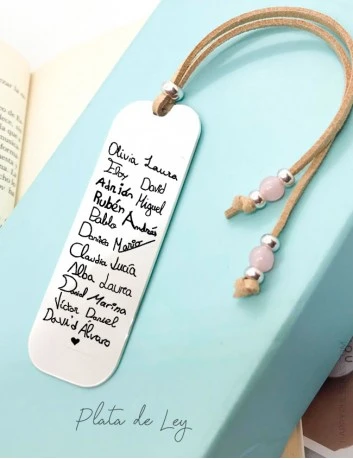 Olivia Laura
Eloy David
Adrián Miguel
Rubén Andrés
Pablo
Daniela María
Claudia Lucía
Alba Laura
David Marina
Víctor Daniel
David Álvaro
Plata de Ley